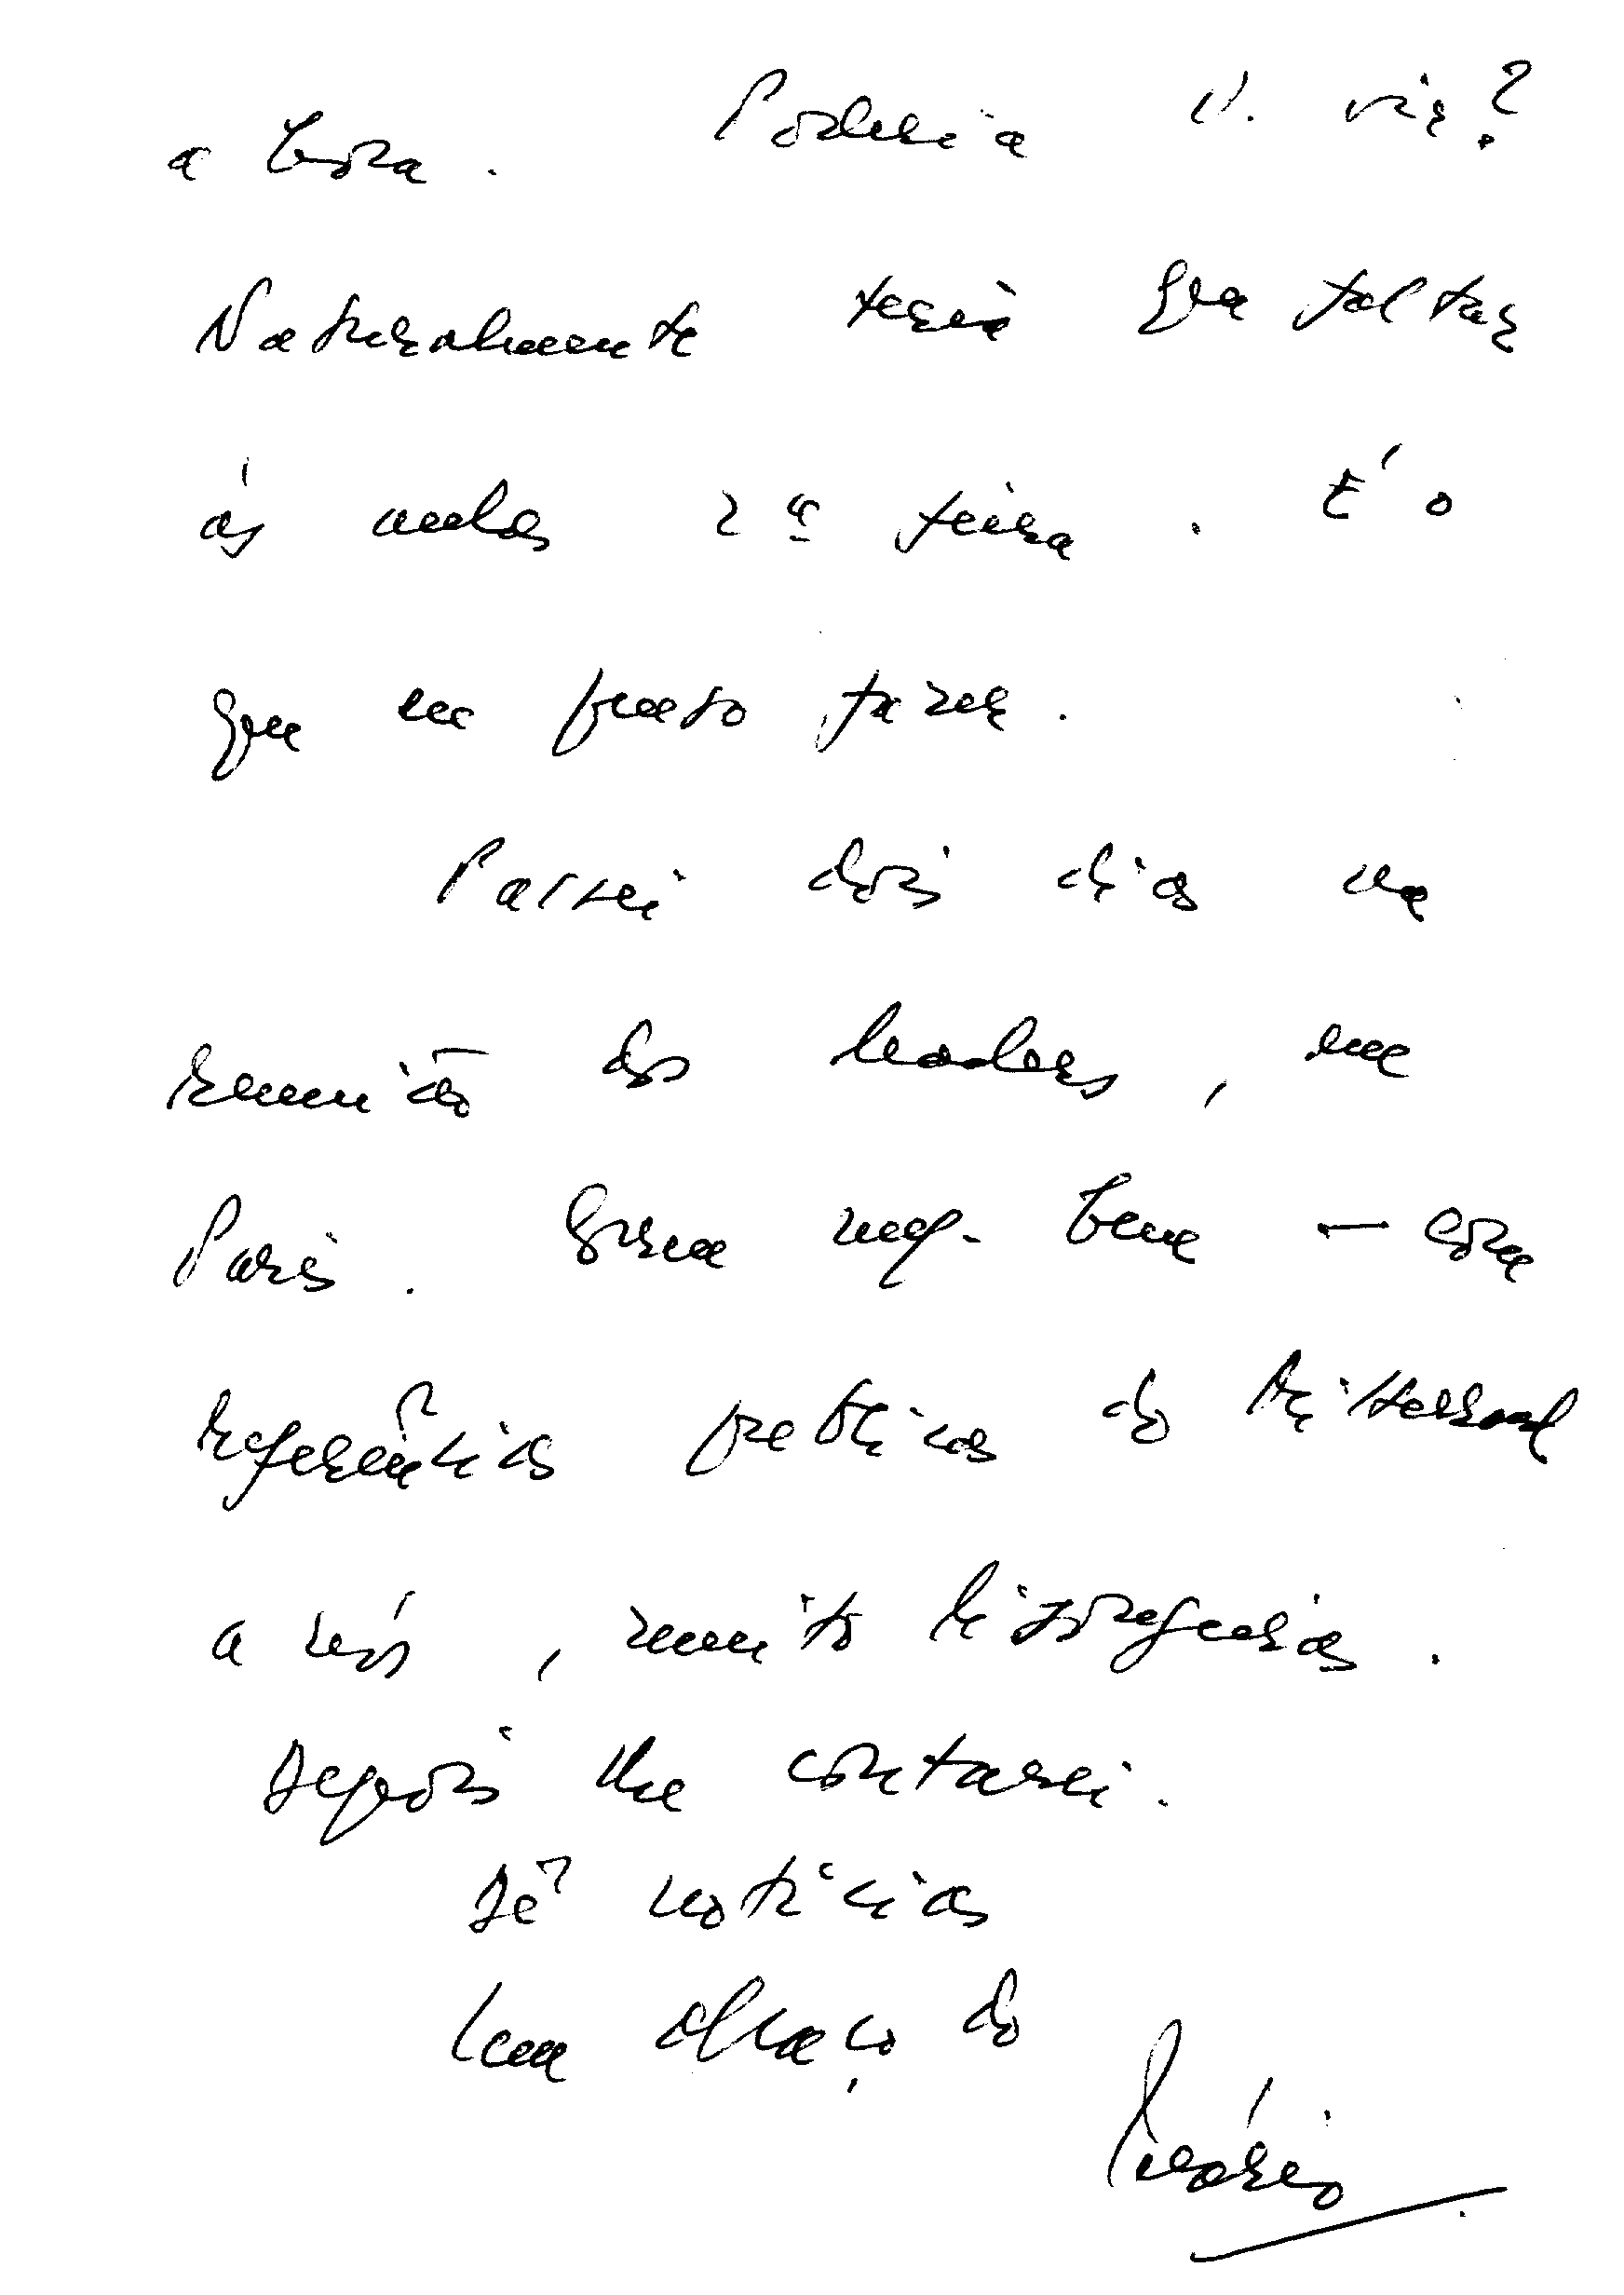 a hora. Poderia V. vir?
Naturalmente teria que faltar
ás aulas 2ª feira. É o
que eu penso fazer.
Passei dois dias na
reunião dos leaders, em
Paris. Correu mto. bem — com
referências públicas do Mitterrand
a nós, muito lisongeiras.
Depois lhe contarei.
Dê notícias
Um abraço do
Mário